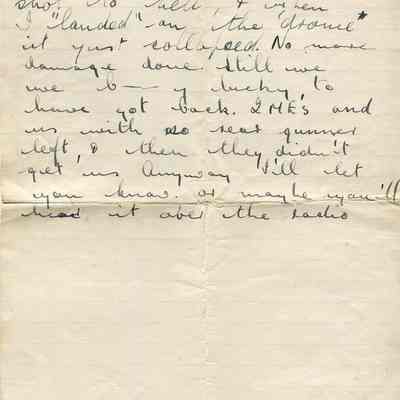 shot to hell, & when
I "landed" on the 'drome"
it just collapsed. No more
damage done. Still we
we b——y lucky, to
have got back. 2 ME's and
us with no rear gunner
left, & then they didn't
get us. Anyway I'll let
you know. or maybe you'll
hear it over the radio